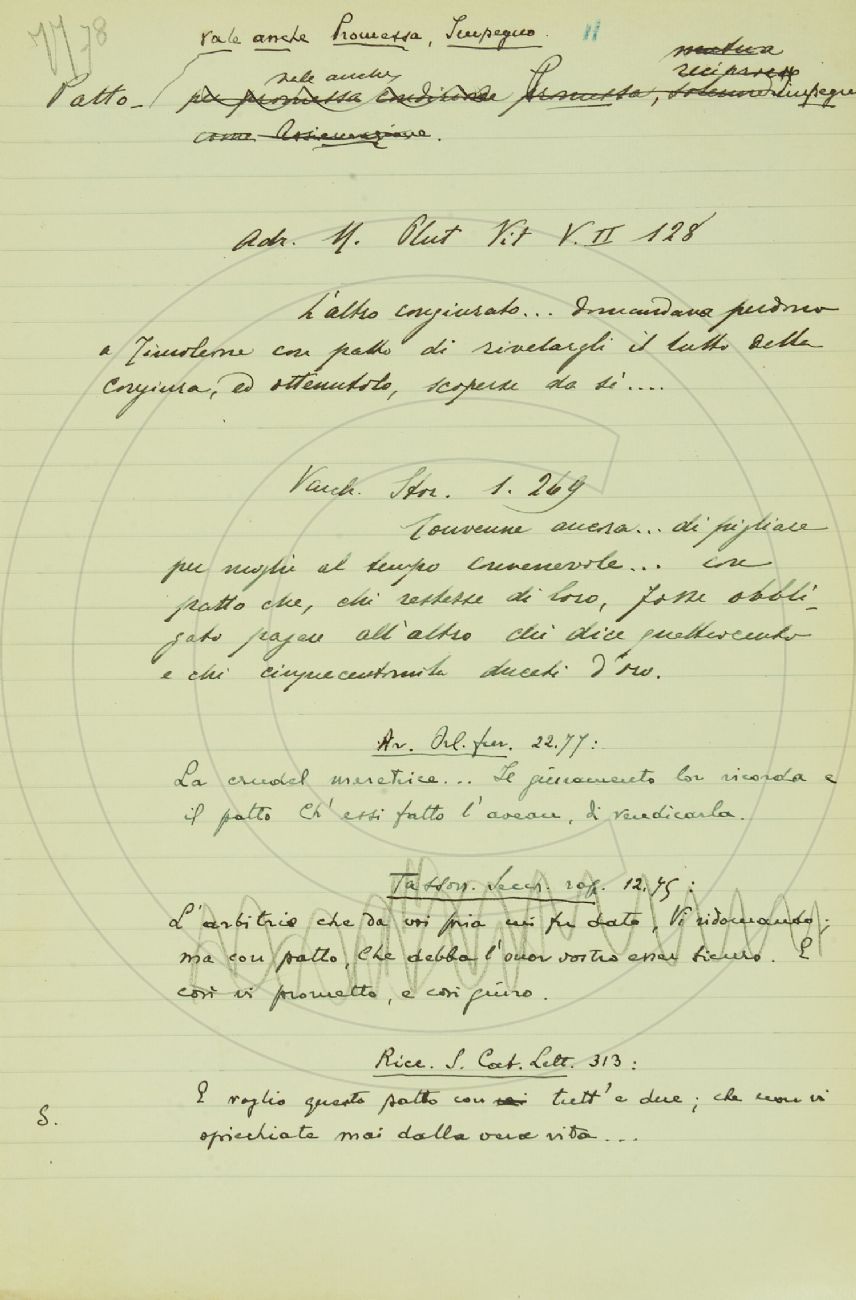 77 78
vale anche Promessa, Impegno. 11
mutua
vale anche reciproco
Patto_ per promessa condizione Promessa, solenne Impegno
come Assicurazione.
Adr. M. Plut Vit V. II 128
L'altro congiurato... domandava perdono
a Timoleone con patto di rivelargli il tutto della
congiura, ed ottenutolo, scoperse da sè....
Varch. Stor. 1. 269
Convenne ancora... di pigliare
per moglie al tempo convenevole... con
patto che, chi restesse di loro, fosse obbli-
gato pagare all'altro chi dice quattrocento
e chi cinquecentomila ducati d'oro.
Ar. Orl. fur. 22.77:
La crudel meretrice... Il giuramento lor ricorda e
il patto Ch' essi fatto l'avean, di vendicarla.
Tasson. Secc. rap. 12.75:
L'arbitrio che da voi pria mi fu dato, Vi ridomando;
ma con patto, Che debba l'onor vostro esser sicuro. E
così vi prometto, e così giuro.
Ricc. S. Cat. Lett. 313:
E voglio questo patto con tutt'e due; che non vi
S.
spicchiate mai dalla vera vita...